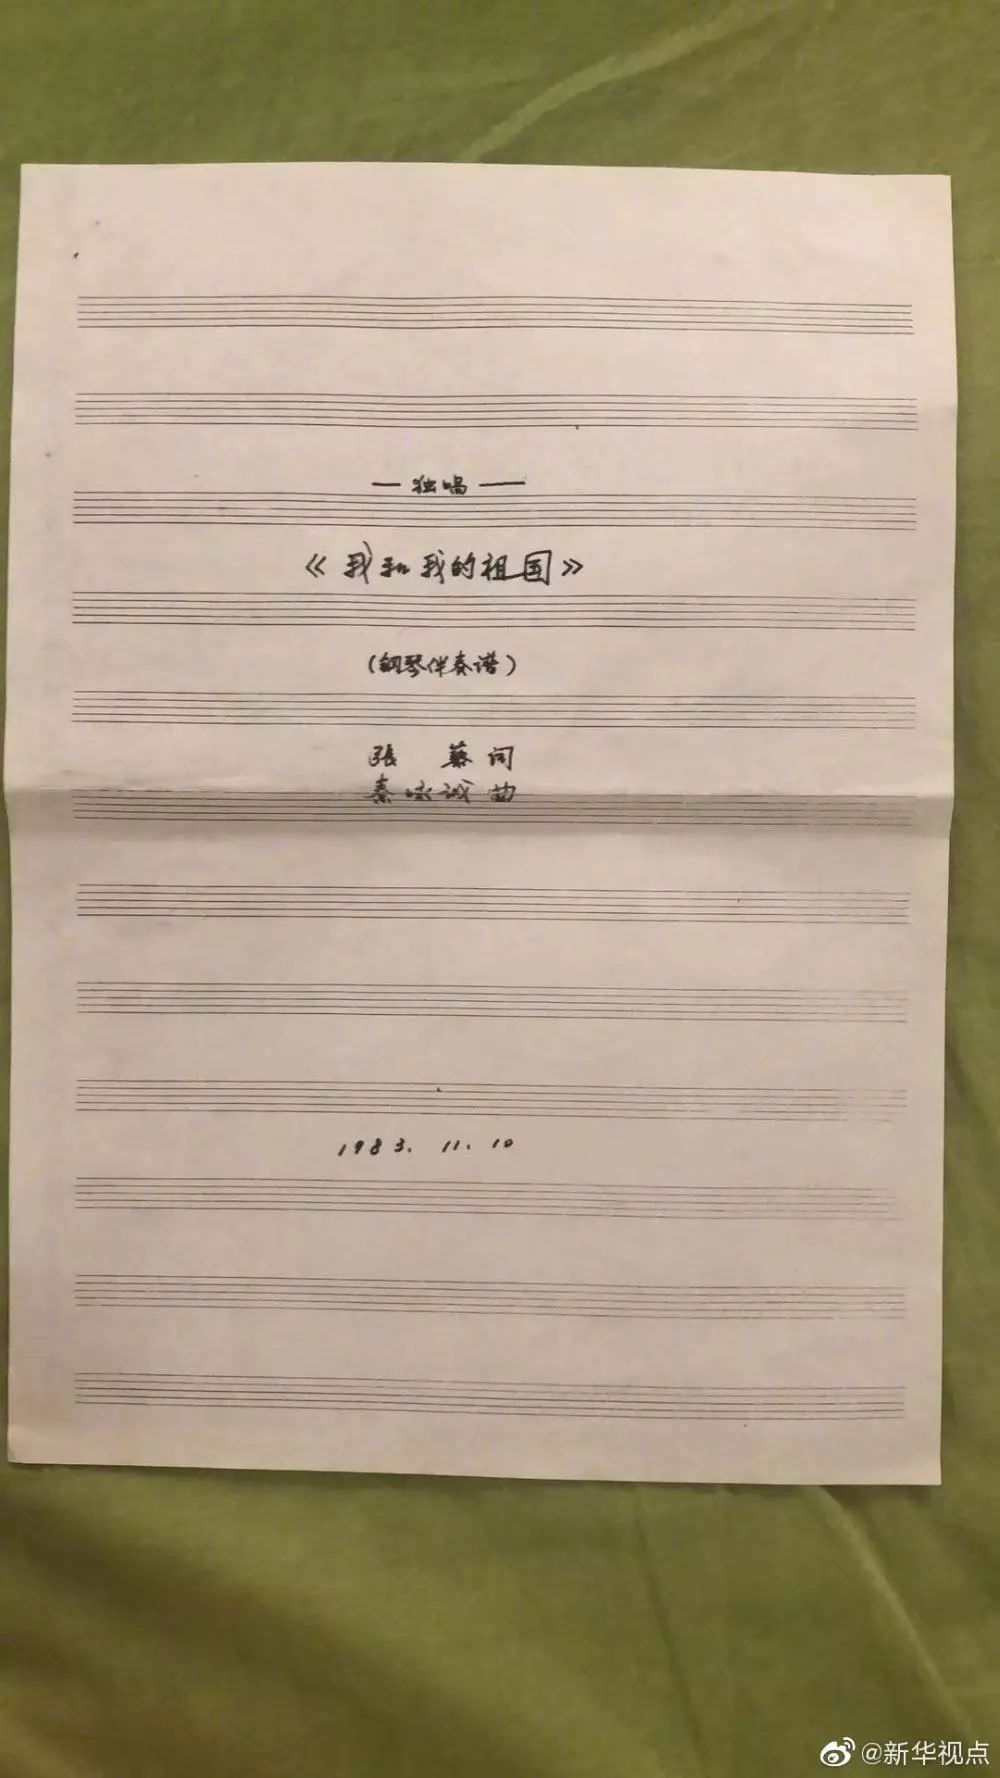 —独唱—
《我和我的祖国》
(钢琴伴奏谱)
張 藜 词
秦咏诚 曲
1983. 11. 10
@新华视点